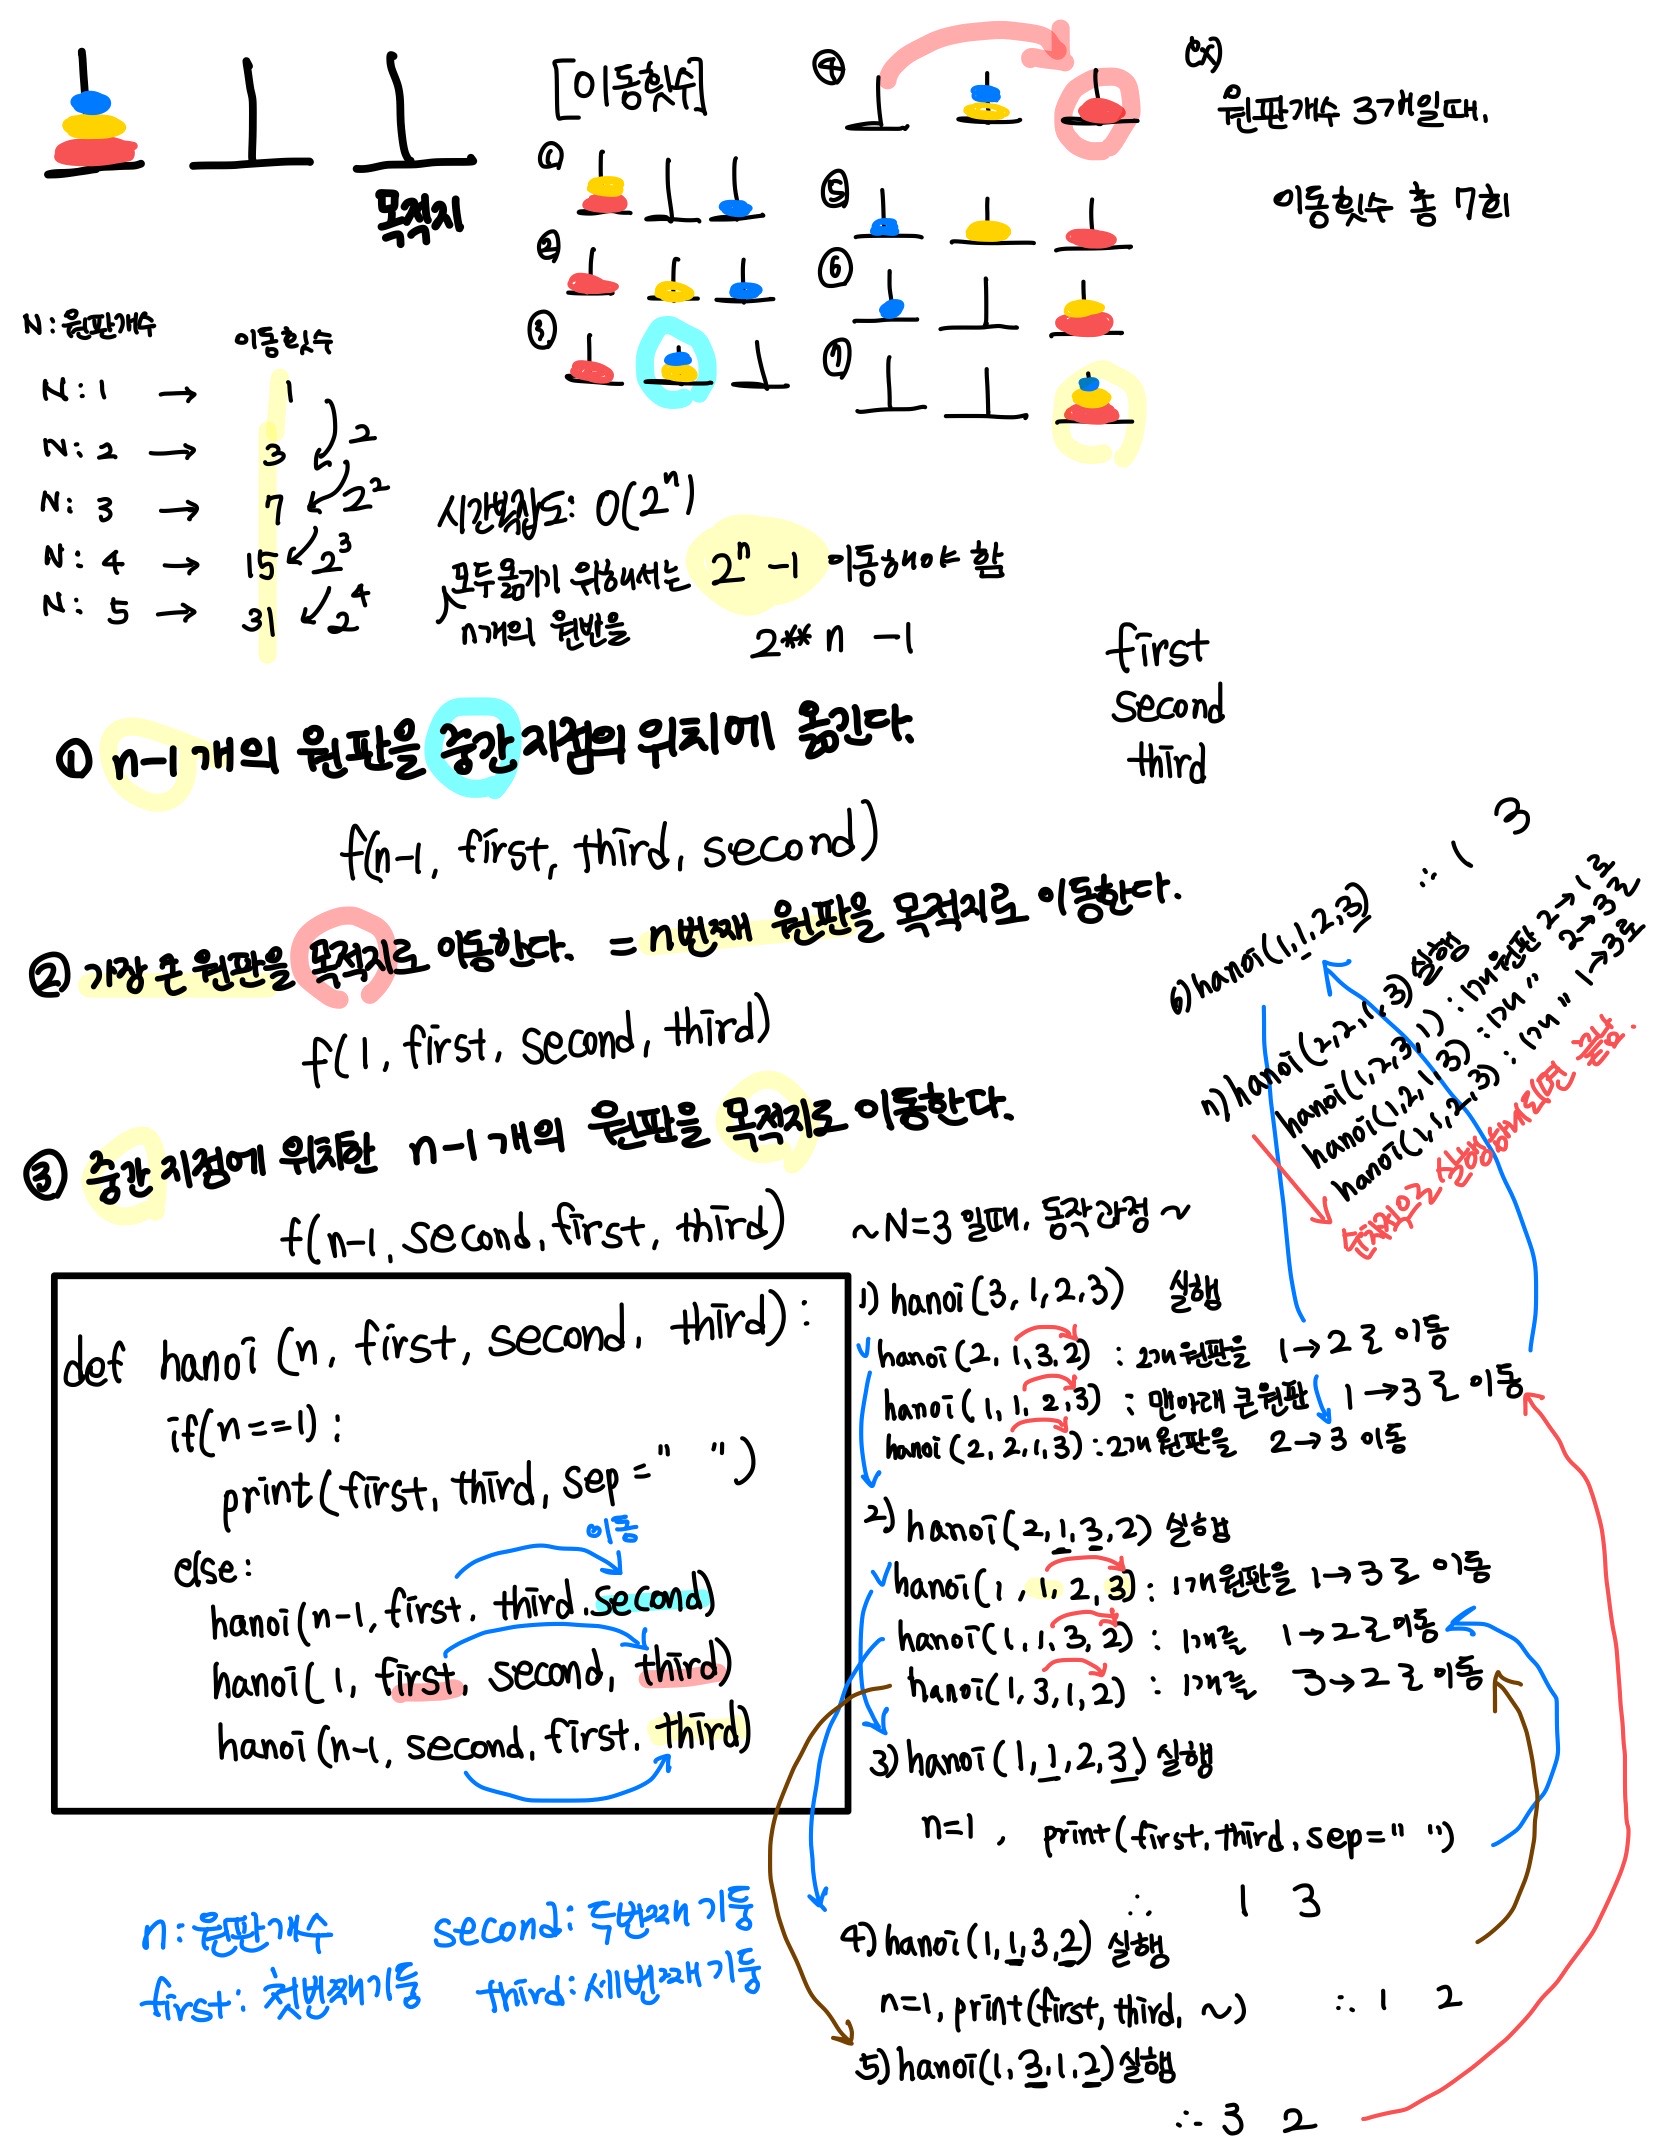 목적지
[이동횟수]
①
②
③
④
⑤
⑥
⑦
ex)
원판개수 3개일때.
이동횟수 총 7회
N: 원판개수 이동횟수
N: 1 → 1
2
N: 2 → 3
2²
N: 3 → 7
2³
N: 4 → 15
2⁴
N: 5 → 31
시간복잡도: O(2ⁿ)
모두옮기기 위해서는 2ⁿ-1 이동해야 함
n개의 원반을
2** n -1
first
second
third
① n-1개의 원판을 중간 지점의 위치에 옮긴다.
f(n-1, first, third, second)
② 가장 큰 원판을 목적지로 이동한다. = n번째 원판을 목적지로 이동한다.
f(1, first, second, third)
③ 중간 지점에 위치한 n-1개의 원판을 목적지로 이동한다.
f(n-1, second, first, third)
def hanoi (n, first, second, third):
if(n==1):
print(first, third, sep=" ")
이동
else:
hanoi(n-1, first, third, second)
hanoi(1, first, second, third)
hanoi(n-1, second, first, third)
n: 원판개수 second: 두번째 기둥
first: 첫번째기둥 third: 세번째 기둥
~N=3 일때, 동작과정~
1) hanoi(3, 1, 2, 3) 실행
hanoi(2, 1, 3, 2) : 2개 원판을 1→2로 이동
hanoi(1, 1, 2, 3) : 맨아래 큰원판 1→3로 이동
hanoi(2, 2, 1, 3) : 2개 원판을 2→3 이동
2) hanoi(2, 1, 3, 2) 실행
hanoi(1, 1, 2, 3) : 1개원판을 1→3로 이동
hanoi(1, 1, 3, 2) : 1개를 1→2로이동
hanoi(1, 3, 1, 2) : 1개를 3→2로 이동
3) hanoi(1, 1, 2, 3) 실행
n=1, print(first, third, sep=" ")
∴ 1 3
4) hanoi(1, 1, 3, 2) 실행
n=1, print(first, third, ~) ∴ 1 2
5) hanoi(1, 3, 1, 2) 실행
∴ 3 2
6) hanoi(1, 1, 2, 3) ∴ 1 3
7) hanoi(2, 2, 1, 3) 실행
hanoi(1, 2, 3, 1) : 1개원판 2→1로
hanoi(1, 2, 1, 3) : 1개 " 2→3로
hanoi(1, 1, 2, 3) : 1개 " 1→3로
순차적으로 실행하게되면 끝남.